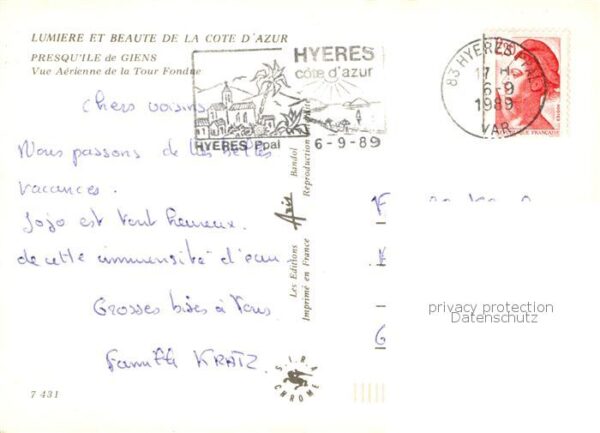 LUMIERE ET BEAUTE DE LA COTE D'AZUR
PRESQU'ILE de GIENS
Vue Aérienne de la Tour Fondue
HYERES
côte d'azur
HYERES Ppal 6-9-89
83 HYERES PPAL
17 H
6-9
1989
VAR
Chers voisins
Nous passons de très belles
vacances.
Jojo est tout heureux.
de cette immensité d'eau
Grosses bises à Vous.
Famille KRATZ.
7 431
Les Editions Aris Bandol
Imprimé en France Reproduction
S.I.R.A
CHROME
privacy protection
Datenschutz